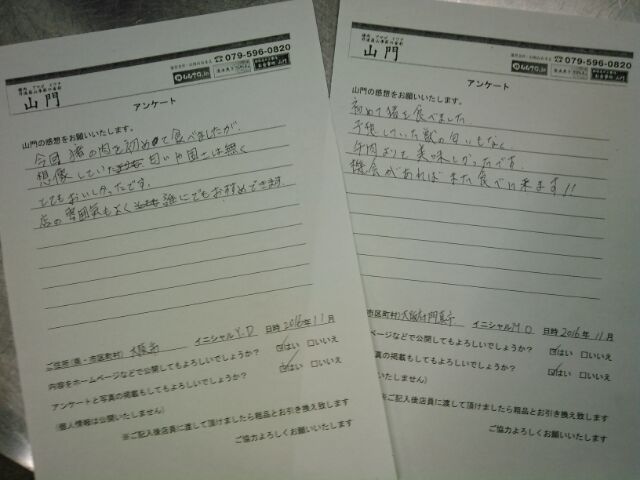 山門
079-596-0820
アンケート
山門の感想をお願いいたします。
今回 猪の肉を初めて食べましたが
想像していた 匂いや固さは無く
とてもおいしかったです。
店の雰囲気もよく 誰にでもお勧めできます
ご住所(県・市区町村) 大阪市 イニシャル Y.D 日時 2016年11月
内容をホームページなどで公開してもよろしいでしょうか? ☑はい □いいえ
アンケートと写真の掲載もしてもよろしいでしょうか? ☑はい □いいえ
(個人情報は公開いたしません)
※ご記入後店員に渡して頂けましたら粗品とお引き換え致します
ご協力よろしくお願いいたします
山門
079-596-0820
アンケート
山門の感想をお願いいたします。
初めて猪を食べました
予想していた獣の匂いもなく
牛肉よりも美味しかったです。
機会があればまた食べに来ます!!
市区町村) 大阪府門真市 イニシャル M.O 日時 2016年11月
ページなどで公開してもよろしいでしょうか? ☑はい □いいえ
真の掲載もしてもよろしいでしょうか? ☑はい □いいえ
いたしません)
※ご記入後店員に渡して頂けましたら粗品とお引き換え致します
ご協力よろしくお願いいたします